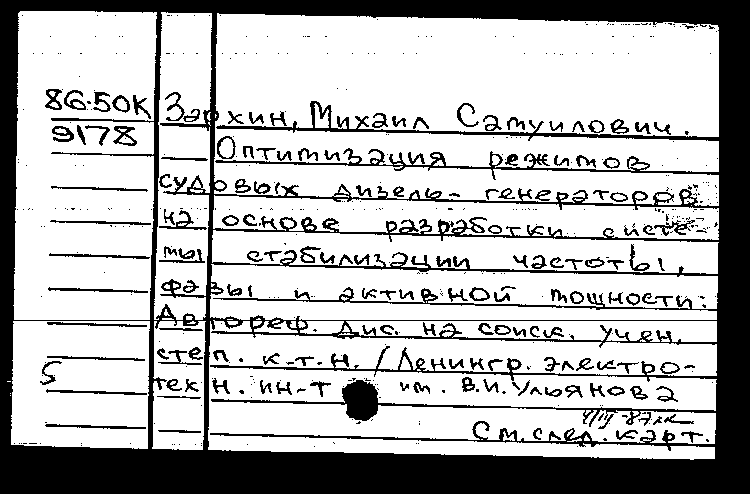 86-50К Зархин, Михаил Самуилович.
9178
Оптимизация режимов
судовых дизель-генераторов
на основе разработки систе-
мы стабилизации частоты,
фазы и активной мощности:
Автореф. дис. на соиск. учен.
степ. к-т.н. / Ленингр. электро-
5 техн. ин-т им. В.И. Ульянова
См. след. карт.